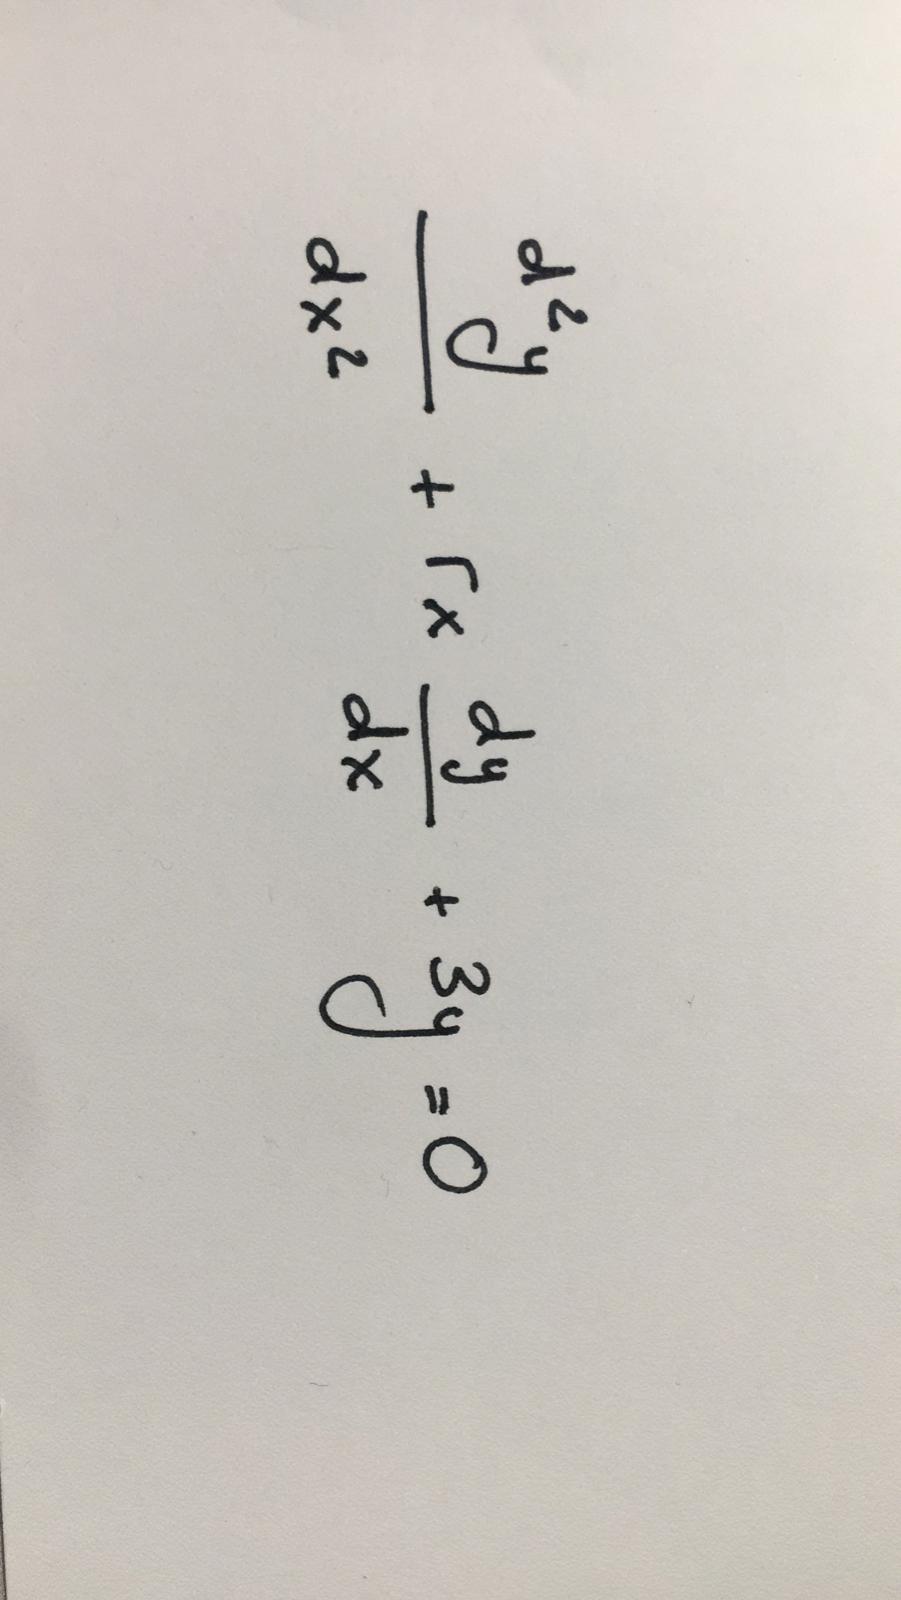 d²y/dx² + rx dy/dx + 3y = 0